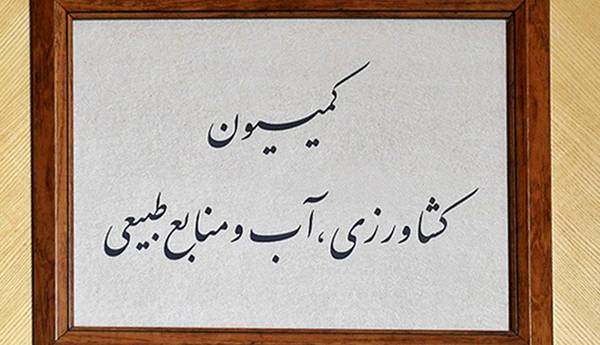 کمیسیون
کشاورزی، آب و منابع طبیعی